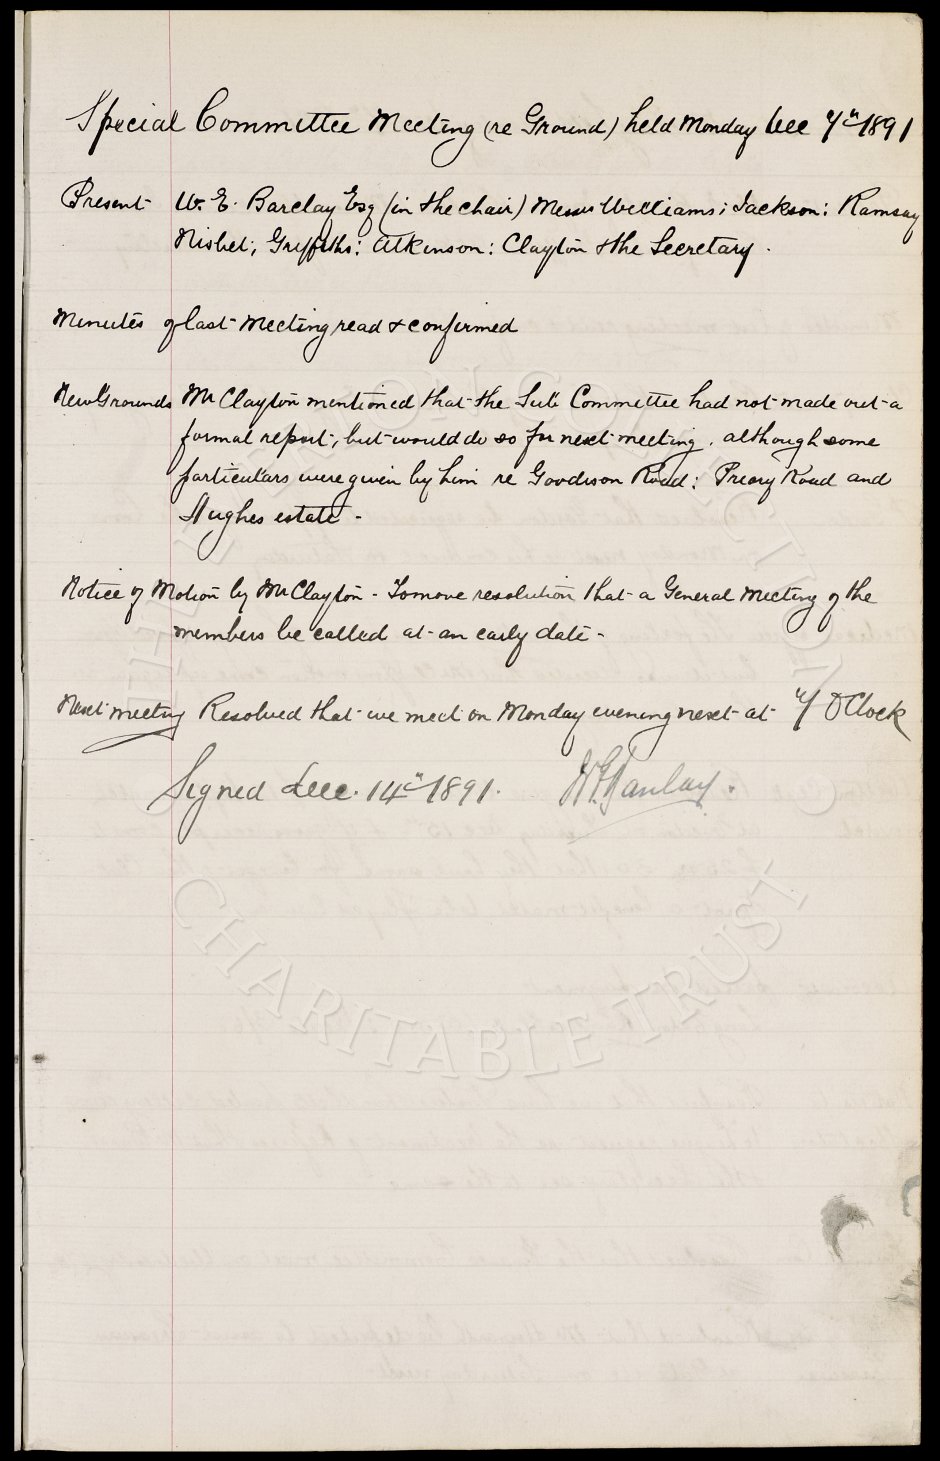 Special Committee Meeting (re Ground) held Monday Dec 7th 1891
Present W. E. Barclay Esq (in the chair) Messrs Williams; Jackson: Ramsay
Nisbet; Griffiths: Atkinson: Clayton & the Secretary.
Minutes of last meeting read & confirmed
New Grounds Mr Clayton mentioned that the Sub Committee had not made out a
formal report, but would do so for next meeting, although some
particulars were given by him re Goodison Road: Priory Road and
Hughes estate -
Notice of Motion by Mr Clayton - To move resolution that a General Meeting of the
members be called at an early date -
Next meeting Resolved that we meet on Monday evening next at 7 O'Clock
Signed Dec. 14th 1891. W E Barclay.
THE EVERTON COLLECTION
CHARITABLE TRUST